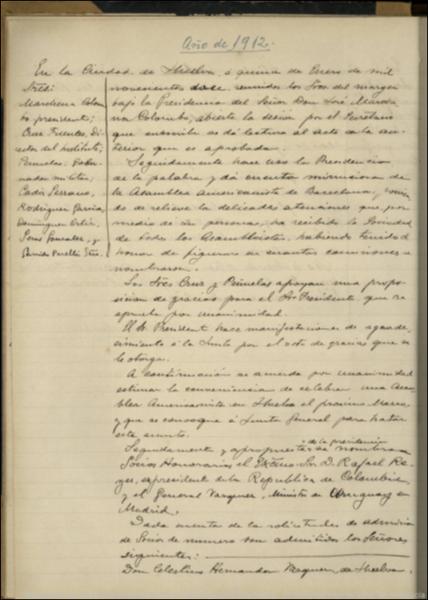 Año de 1912.
En la Ciudad de Huelva, a quince de Enero de mil
novecientos doce, reunidos los Sres. del margen
bajo la Presidencia del Señor Don José Marche-
na Colombo, abierta la sesión por el Secretario
que suscribe se dá lectura al acta de la an-
terior que es aprobada.
Sres:
Marchena Colom-
bo, presidente;
Cruz Fuentes, Di-
rector del Instituto;
Gober-
nador militar;
Cadiz Serrano,
Rodriguez Garcia,
Dominguez Ortiz,
Gonzalez, y
Garcia Srio.
Seguidamente hace uso la Presidencia
de la palabra y dá cuenta minuciosa de
la Asamblea Americanista de Barcelona, ponien-
do de relieve las delicadas atenciones que por
medio de su persona, ha recibido la Sociedad
de todos los Asambleistas, habiendo tenido el
honor de figurar en cuantas comisiones se
nombraron.
Los Sres Cruz y apoyan una propo-
sicion de gracias para el Sr. Presidente, que se
aprueba por unanimidad.
El Sr. President hace manifestaciones de agrade-
cimiento á la Junta por el voto de gracias que se
le otorga.
A continuación se acuerda por unanimidad
estimar la conveniencia de celebrar una Asam-
blea Americanista en Huelva el próximo Marzo
y que se convoque á Junta General para tratar
este asunto.
Seguidamente y a propuesta de la presidencia se nombran
Socios Honorarios al Exmo. Sr. D. Rafael Re-
yes, expresidente de la Republica de Colombia
y el General Vazquez, Ministro de Uruguay en
Madrid.
Dada cuenta de las solicitudes de admision
de Socios de numero son admitidos los Señores
siguientes:
Don Celestino Hernandez Vazquez, de Huelva.